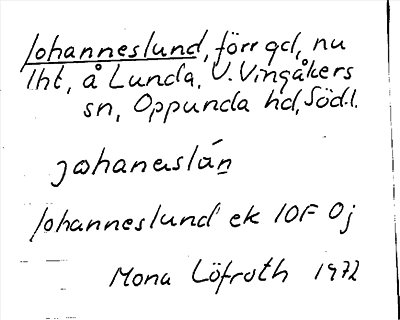 Johanneslund, förr gd, nu
lht, å Lunda, V. Vingåkers
sn, Oppunda hd, Södl.
johanəslún
Johanneslund ek 10F 0j
Mona Löfroth 1972